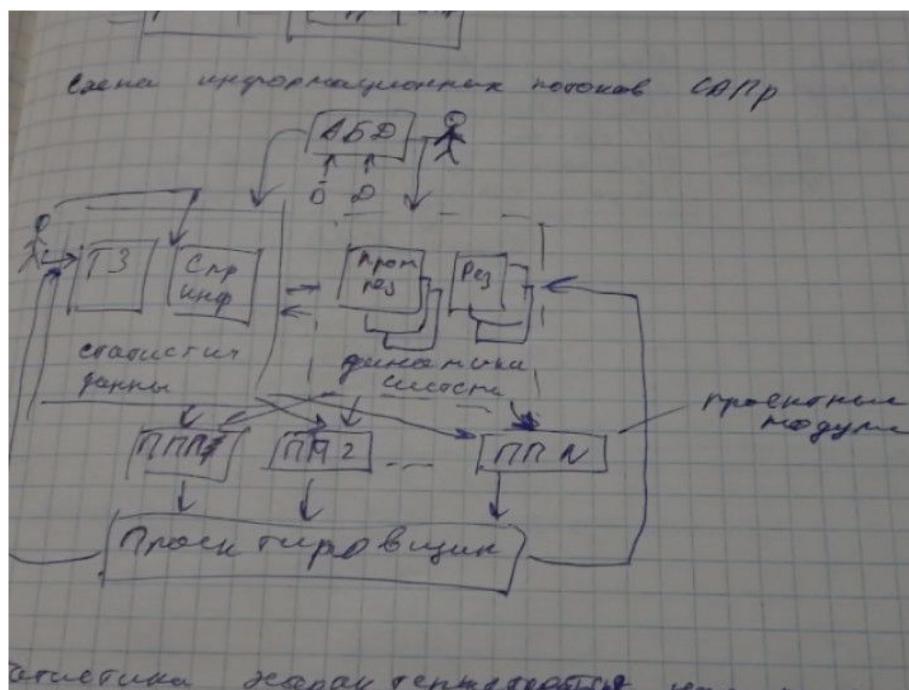 Схема информационных потоков САПр
АБД
О Д
ТЗ
Спр
инф
Пром
рез
Рез
статистич
данны
динамика
ППП1
ПП2
...
ПП N
проектные
модули
Проектировщик